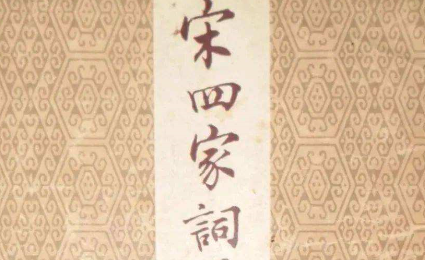 宋四家詞